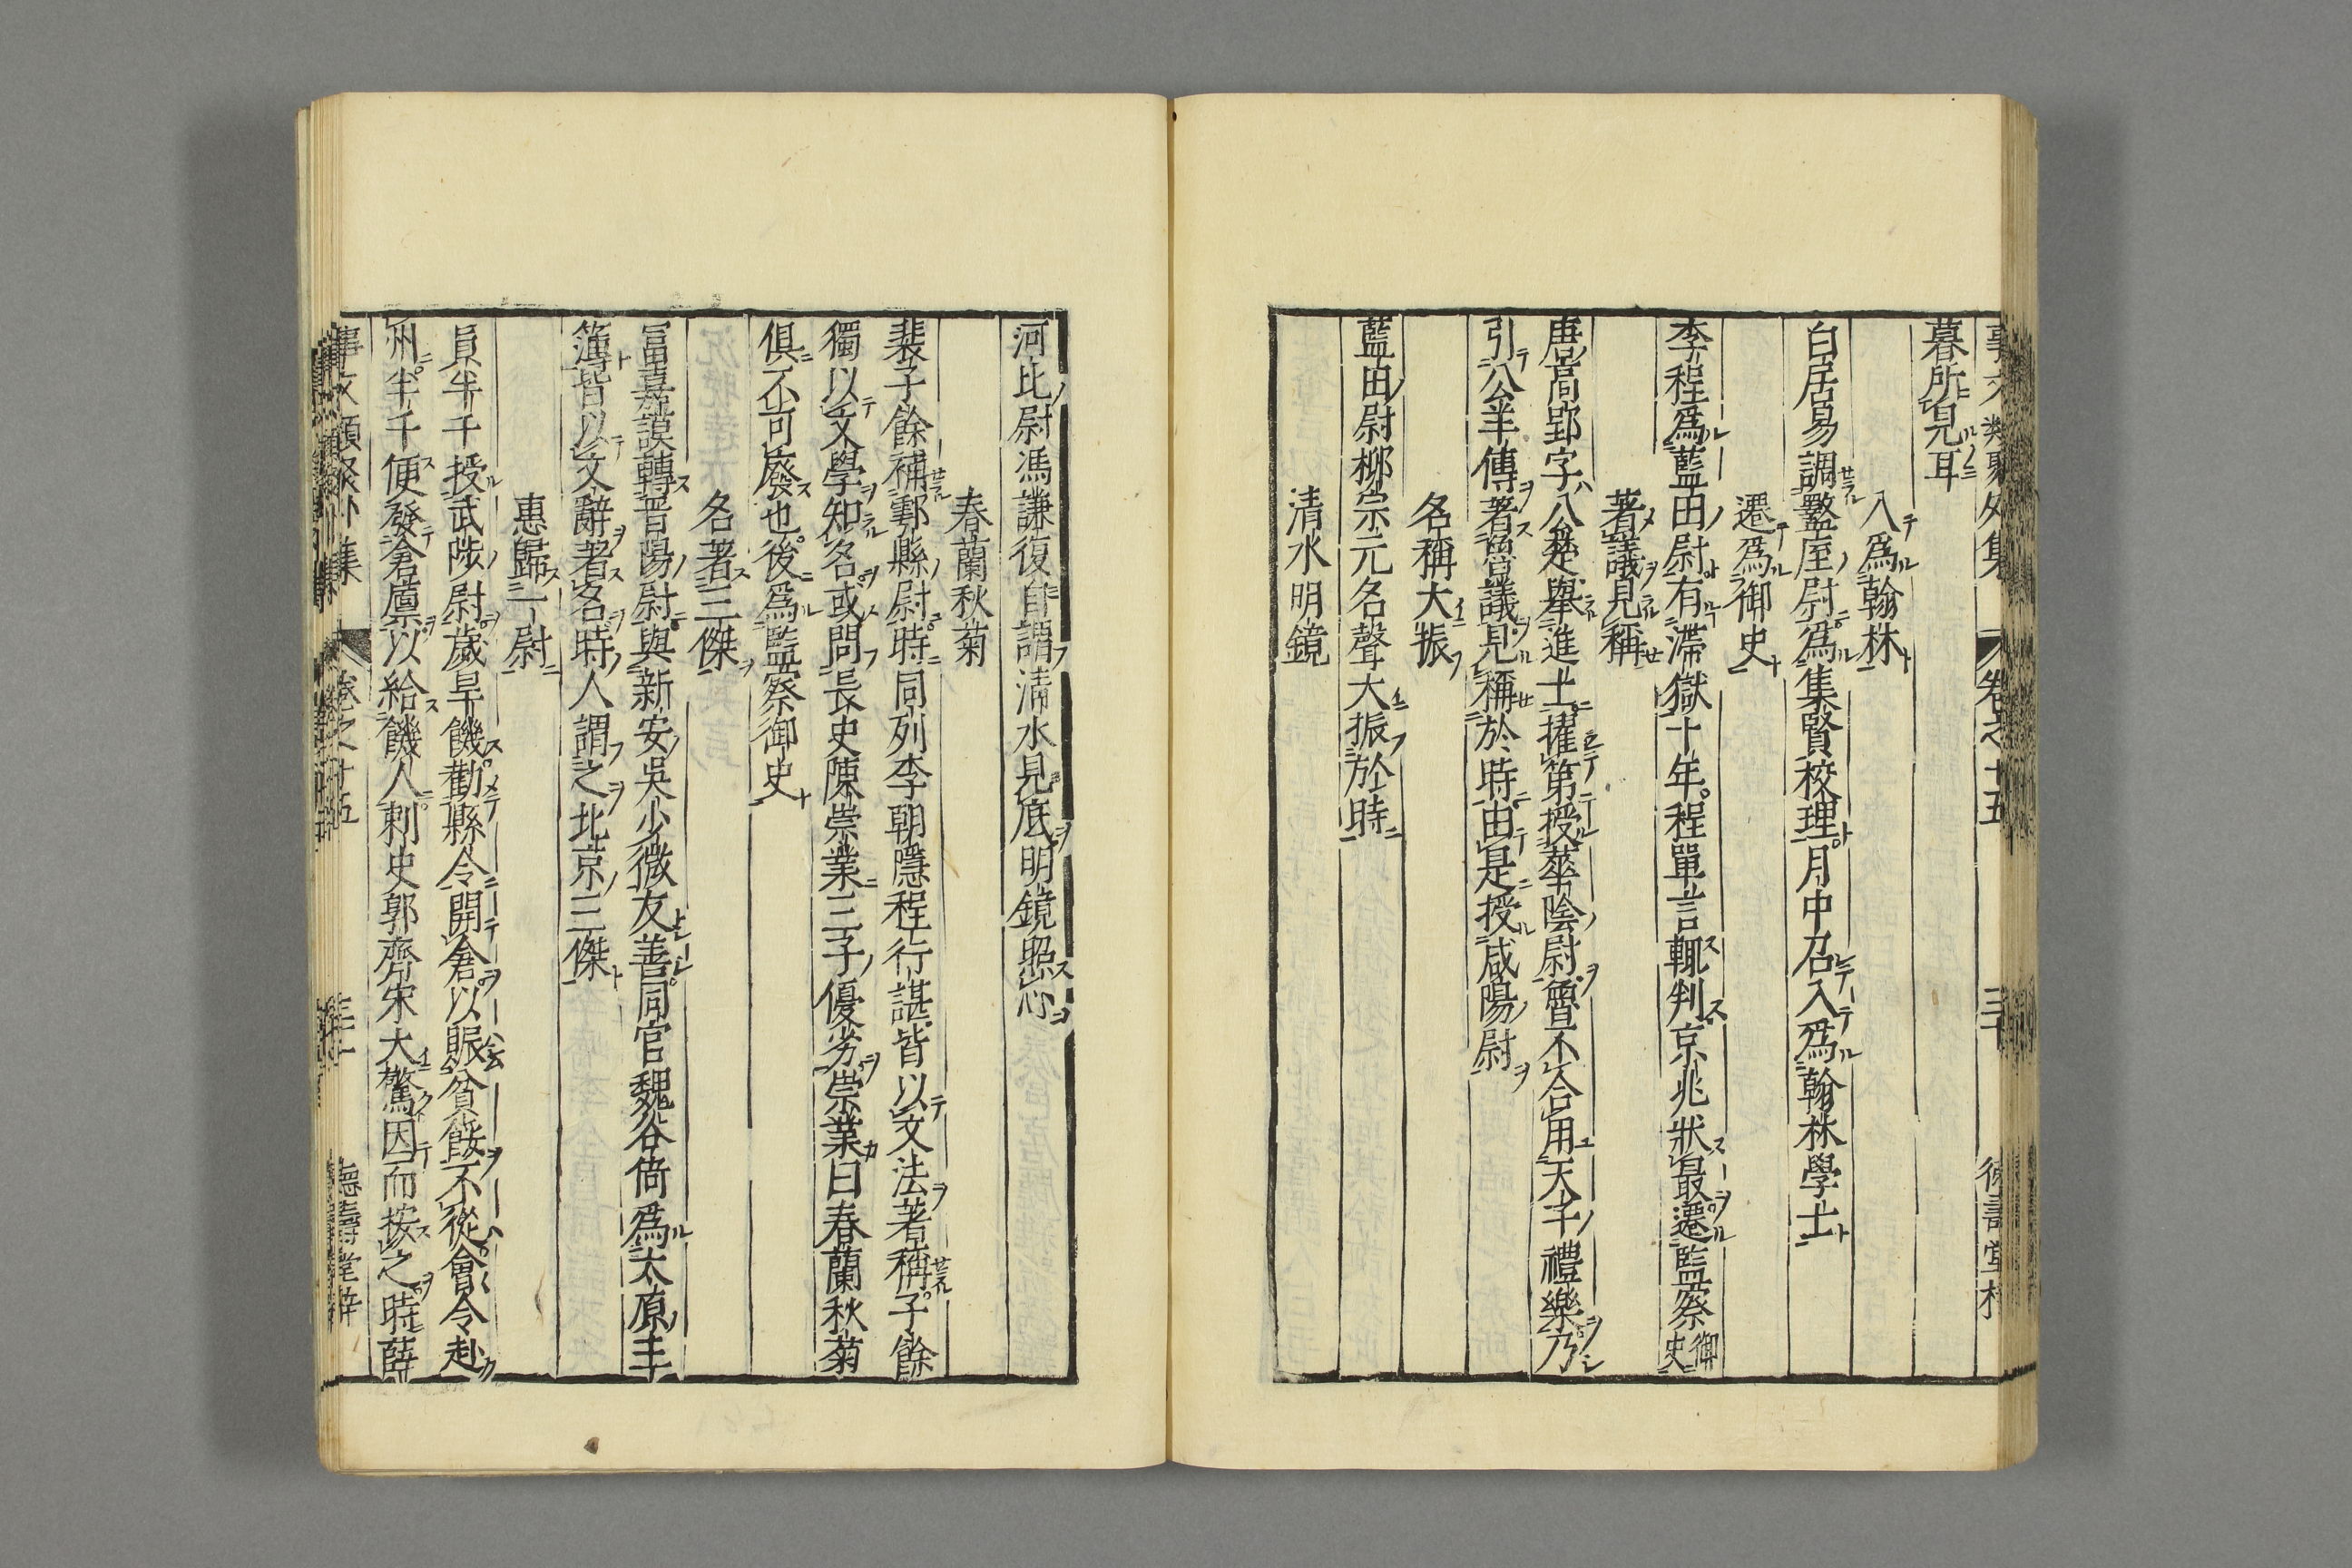 事文類聚外集 卷之十五 三十 德壽堂梓
暮所見耳
入爲翰林
白居易調盩厔尉爲集賢校理月中召入爲翰林學士
遷爲御史
李程爲藍田尉有滯獄十年程單言輒判京兆狀最遷監察御史
著議見稱
唐高郢字公楚舉進士擢第授華陰尉魯不合用天子禮樂乃
引公羊傳著魯議見稱於時由是授咸陽尉
名稱大振
藍田尉柳宗元名聲大振於時
清水明鏡
河北尉馮謙復自謂清水見底明鏡照心
春蘭秋菊
裴子餘補鄠縣尉時同列李朝隱程行諶皆以文法著稱子餘
獨以文學知名或問長史陳崇業三子優劣崇業曰春蘭秋菊
俱不可廢也後爲監察御史
名著三傑
富嘉謨轉晋陽尉與新安吳少微友善同官魏谷倚爲太原主
簿皆以文辭著名時人謂之北京三傑
惠歸一尉
員半千授武陟尉歲旱饑勸縣令開倉以賑貧餒不從會令赴
州半千便發滄廩以給饑人刺史郭齊宗大驚因而按之時薛
事文類聚外集 卷之十五 三十一 德壽堂梓